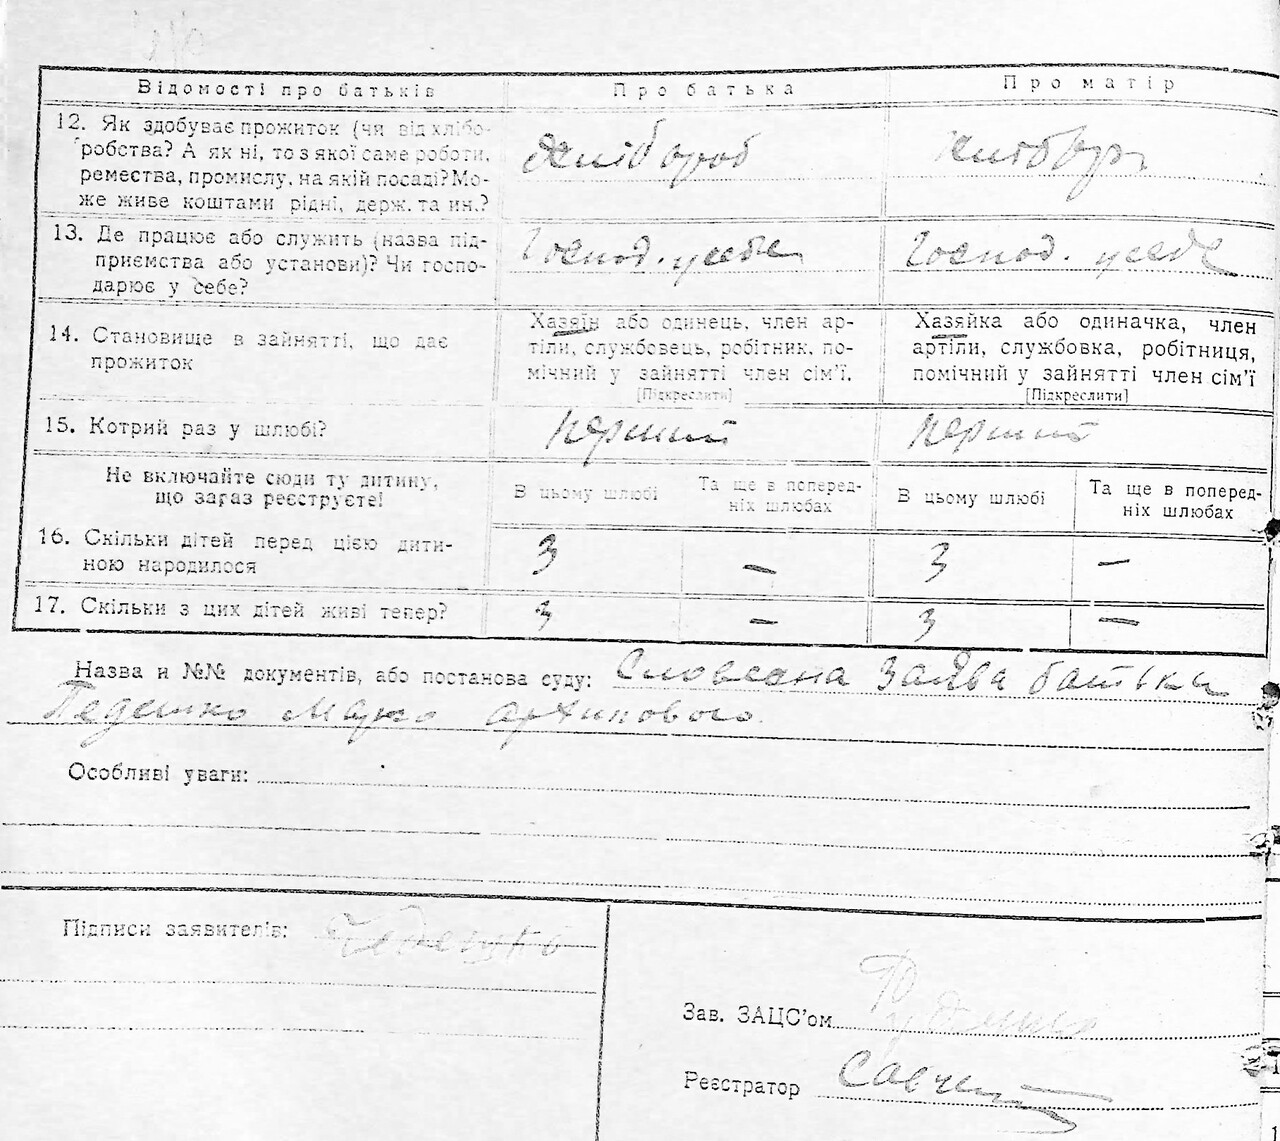 Відомості про батьків
Про батька
Про матір
12. Як здобуває прожиток (чи від хлібо-
робства? А як ні, то з якої саме роботи,
ремества, промислу, на якій посаді? Мо-
же живе коштами рідні, держ. та ин.?
хлібороб
хлібороб
13. Де працює або служить (назва під-
приємства або установи)? Чи госпо-
дарює у себе?
Господ. у себе
Господ. у себе
14. Становище в зайнятті, що дає
прожиток
Хазяїн або одинець, член ар-
тіли, службовець, робітник, по-
мічний у зайнятті член сім'ї.
[Підкреслити]
Хазяйка або одиначка, член
артіли, службовка, робітниця,
помічний у зайнятті член сім'ї
[Підкреслити]
15. Котрий раз у шлюбі?
перший
перший
Не включайте сюди ту дитину,
що зараз реєструєте!
В цьому шлюбі
Та ще в поперед-
ніх шлюбах
В цьому шлюбі
Та ще в поперед-
ніх шлюбах
16. Скільки дітей перед цією дити-
ною народилося
3
—
3
—
17. Скільки з цих дітей живі тепер?
3
—
3
—
Назва и №№ документів, або постанова суду: Словесна заява батька
Марко Архипового.
Особливі уваги:
Підписи заявителів:
Зав. ЗАЦС'ом
Реєстратор